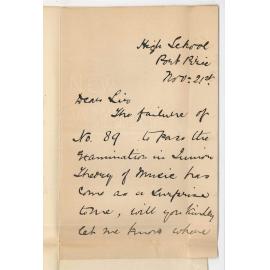 High School
Port Pirie
Nov. 21st.
Dear Sir
The failure of
No. 89 to pass the
Examination in Junior
Theory of Music has
come as a surprise
to me, will you kindly
let me know where